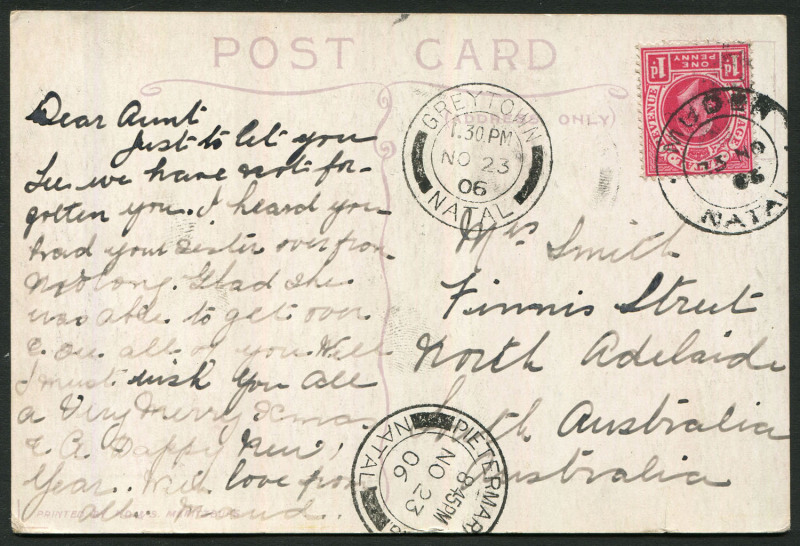 POST CARD
(ADDRESS ONLY)
Dear Aunt
Just to let you
See we have not for-
gotten you. I heard you
had your sister over from
Not long. Glad she
was able to get over
& See all of you. Well
I must wish you all
a Very Merry Xmas
& A Happy New
Year. With love from
all. Maud.
Mrs Smith
Finnis Street
North Adelaide
South Australia
Australia
ONE PENNY
1d 1d
REVENUE
GREYTOWN
1.30 PM
NO 23
06
NATAL
MUDEN
23 NO
06
NATAL
PIETERMAR
8.45PM
NO 23
06
NATAL
PRINTED